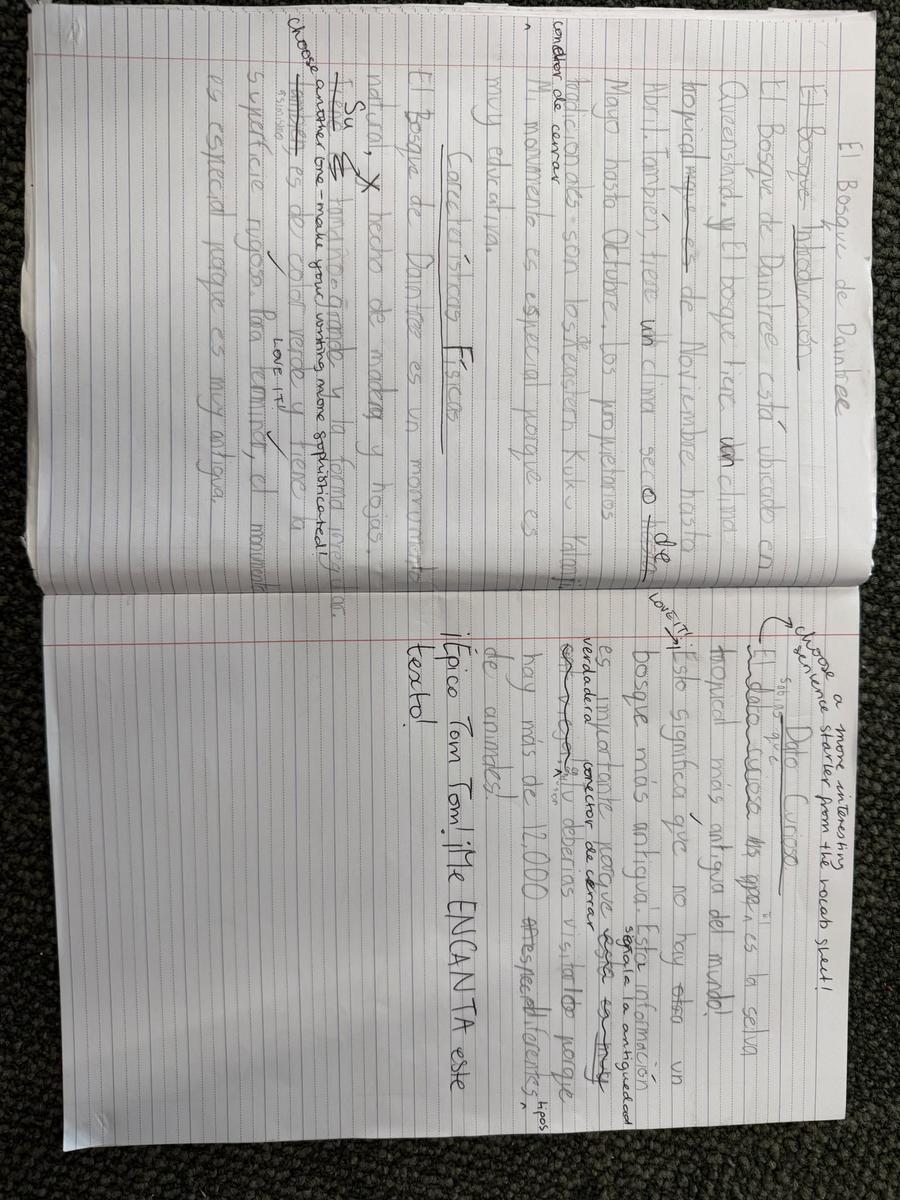 El Bosque de Daintree
El Bosque Introducción
El Bosque de Daintree está ubicado en
Queensland. y El bosque tiene un clima
tropical que es de Noviembre hasta
Abril. También, tiene un clima seco de
Mayo hasta Octubre. Los propietarios
tradicionales son los de eastern Kuku Yalanji
conector de cerrar
^ Mi monumento es especial porque es
muy educativa.
Características Físicas
El Bosque de Daintree es un monumento
natural, X hecho de madera y hojas.
Su
Tiene tamaño grande y la forma irregular.
choose another one - make your writing more sophisticated!
también, es de color verde y tiene la
asimismo
superficie rugosa. Para terminar, el monumento
LOVE IT!
es especial porque es muy antigua
choose a more interesting
sentence starter from the vocab sheet!
Dato Curioso
sabías que
El dato curioso es la selva
tropical más antigua del mundo!
LOVE IT!
Esto significa que no hay otra un
bosque más antigua. Esta información
señala la antiguedad
es importante porque esta es muy
verdadera conector de cerrar
tu deberías visitarlo porque
hay más de 12,000 diferentes tipos
de animales!
¡Épico Tom Tom! ¡Me ENCANTA este
texto!